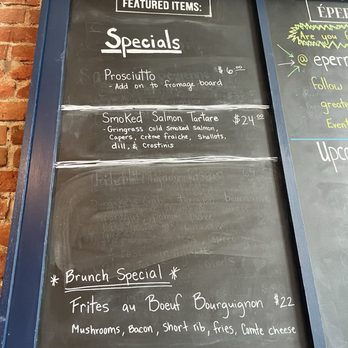 FEATURED ITEMS:
Specials
Prosciutto $6.00
- Add on to fromage board
Smoked Salmon Tartare $24.00
- Gringrass cold smoked salmon,
Capers, crème fraiche, shallots,
dill, & Crostinis
* Brunch Special *
Frites au Boeuf Bourguignon $22
Mushrooms, Bacon, Short rib, fries, Comte cheese
ÉPE
Are you
@ eperr
follow
greate
Even
Upco